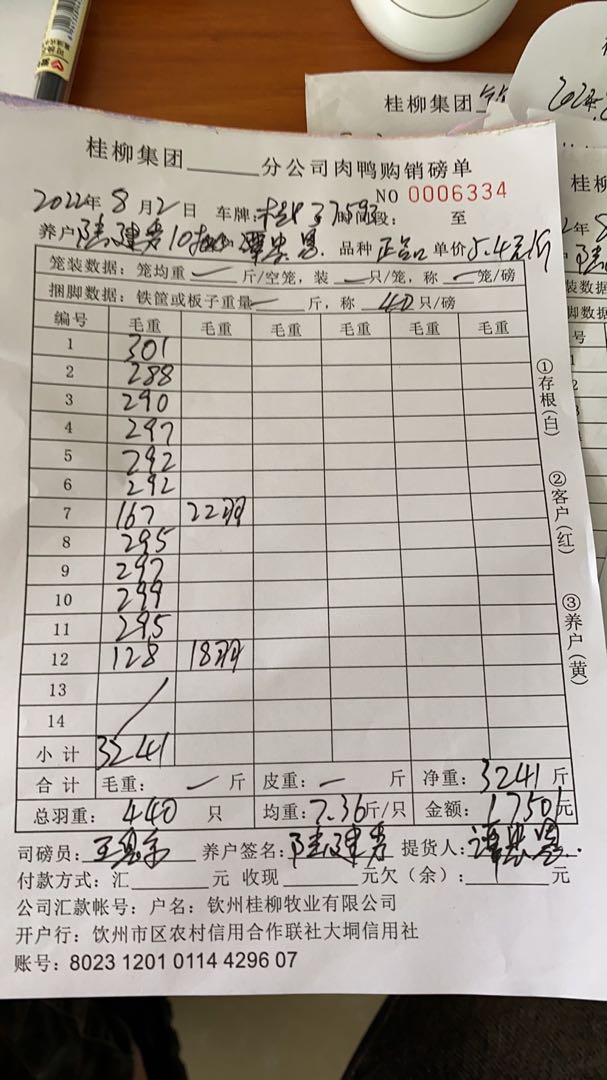 桂柳集团
桂柳集团______分公司肉鸭购销磅单
2022年8月2日 车牌: 时间段: 至
NO 0006334
养户 品种 单价5.4元/斤
笼装数据：笼均重 — 斤/空笼，装 — 只/笼，称 — 笼/磅
捆脚数据：铁筐或板子重量 — 斤，称 40 只/磅
编号 毛重 毛重 毛重 毛重 毛重 毛重
1 301
2 288
3 290
4 297
5 292
6 292
7 167 22羽
8 295
9 297
10 299
11 295
12 128 18羽
13
14
小计 3241
合计 毛重： — 斤 皮重： — 斤 净重：3241斤
总羽重： 440 只 均重：7.36斤/只 金额：17501元
司磅员： 养户签名：陆建 提货人：
付款方式：汇______元 收现______元欠（余）：______元
公司汇款帐号：户名：钦州桂柳牧业有限公司
开户行：饮州市区农村信用合作联社大垌信用社
账号：8023 1201 0114 4296 07
①存根(白)
②客户(红)
③养户(黄)